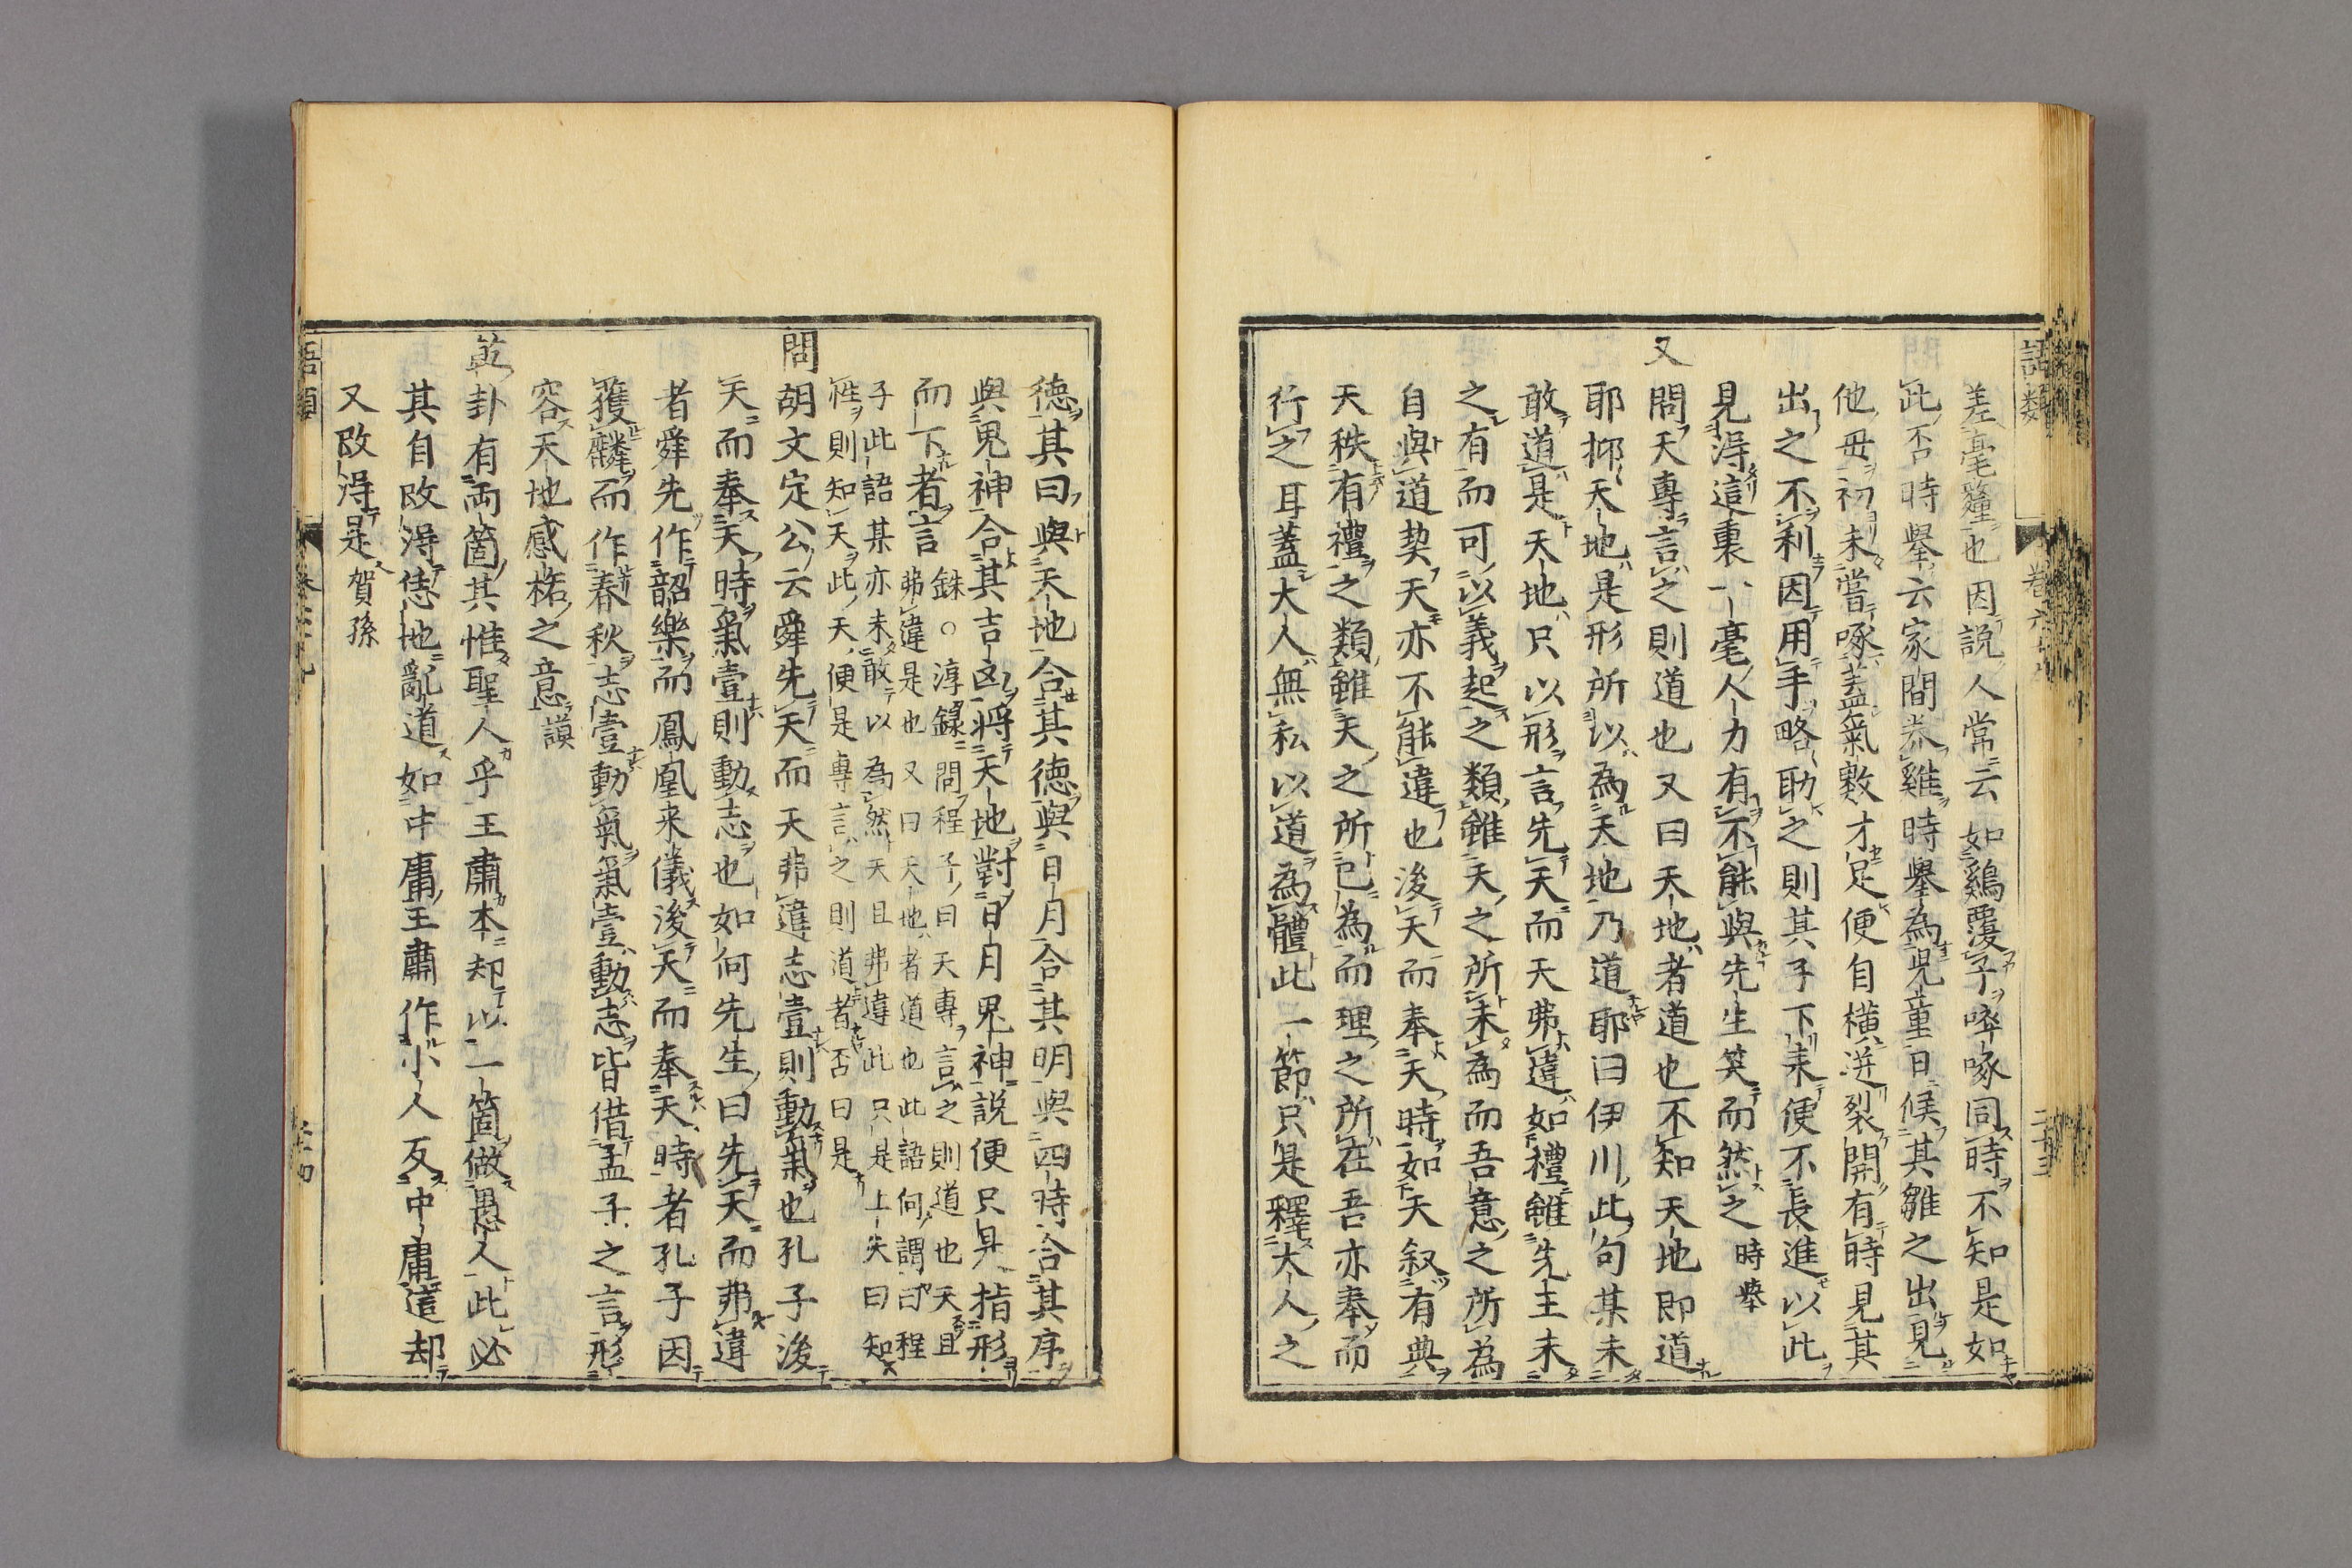 語類　卷六十九　二十三
差毫釐也因説人常云如鷄覆子啐啄同時不知是如
此否時舉云家間養雞時舉為児童日候其雛之出見
他毋初未嘗啄盖氣數才足便自橫迸裂開有時見其
出之不利因用手略助之則其子下来便不長進以此
見淂這裏一毫人力有不能與先生笑而然之時舉
又問天專言之則道也又曰天地者道也不知天地即道
耶抑天地是形所以為天地乃道耶曰伊川此句某未
敢道是天地只以形言先天而天弗違如禮雖先王未
之有而可以義起之類雖天之所未為而吾意之所為
自與道契天亦不能違也後天而奉天時如天叙有典
天秩有禮之類雖天之所已為而理之所在吾亦奉而
行之耳蓋大人無私以道為體此一節只是釋大人之
徳其曰與天地合其徳與日月合其明與四時合其序
與鬼神合其吉凶将天地對日月鬼神説便只是指形
而下者言銖○淳録問程子曰天專言之則道也天且
弗違是也又曰天地者道也此語何謂曰程
子此語某亦未敢以為然天且弗違此只是上天曰知
性則知天此天便是專言之則道者否曰是
問胡文定公云舜先天而天弗違志壹則動氣也孔子後
天而奉天時氣壹則動志也如何先生曰先天而弗違
者舜先作韶樂而鳳凰来儀後天而奉天時者孔子因
獲麟而作春秋志壹動氣氣壹動志皆借孟子之言形
容天地感格之意謨
並卦有両箇其惟聖人乎王肅本却以一箇做愚人此必
其自改淂恁地亂道如中庸王肅作小人反中庸這却
又改淂是賀孫
語類